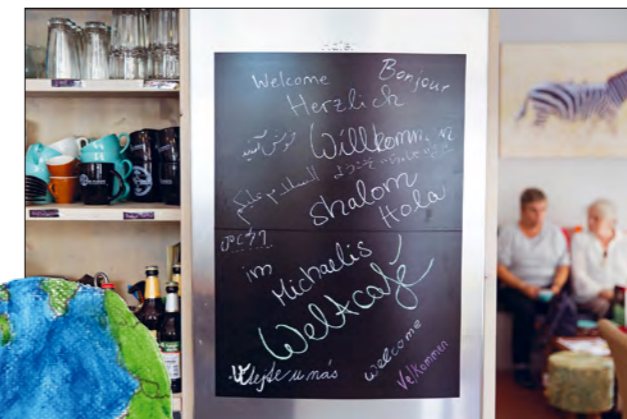 Welcome
Bonjour
Herzlich
خوش آمدید
Willkommen
السلام علیکم
Shalom
Hola
im
Michaelis
Weltcafé
Vítejte u nás
welcome
Velkommen